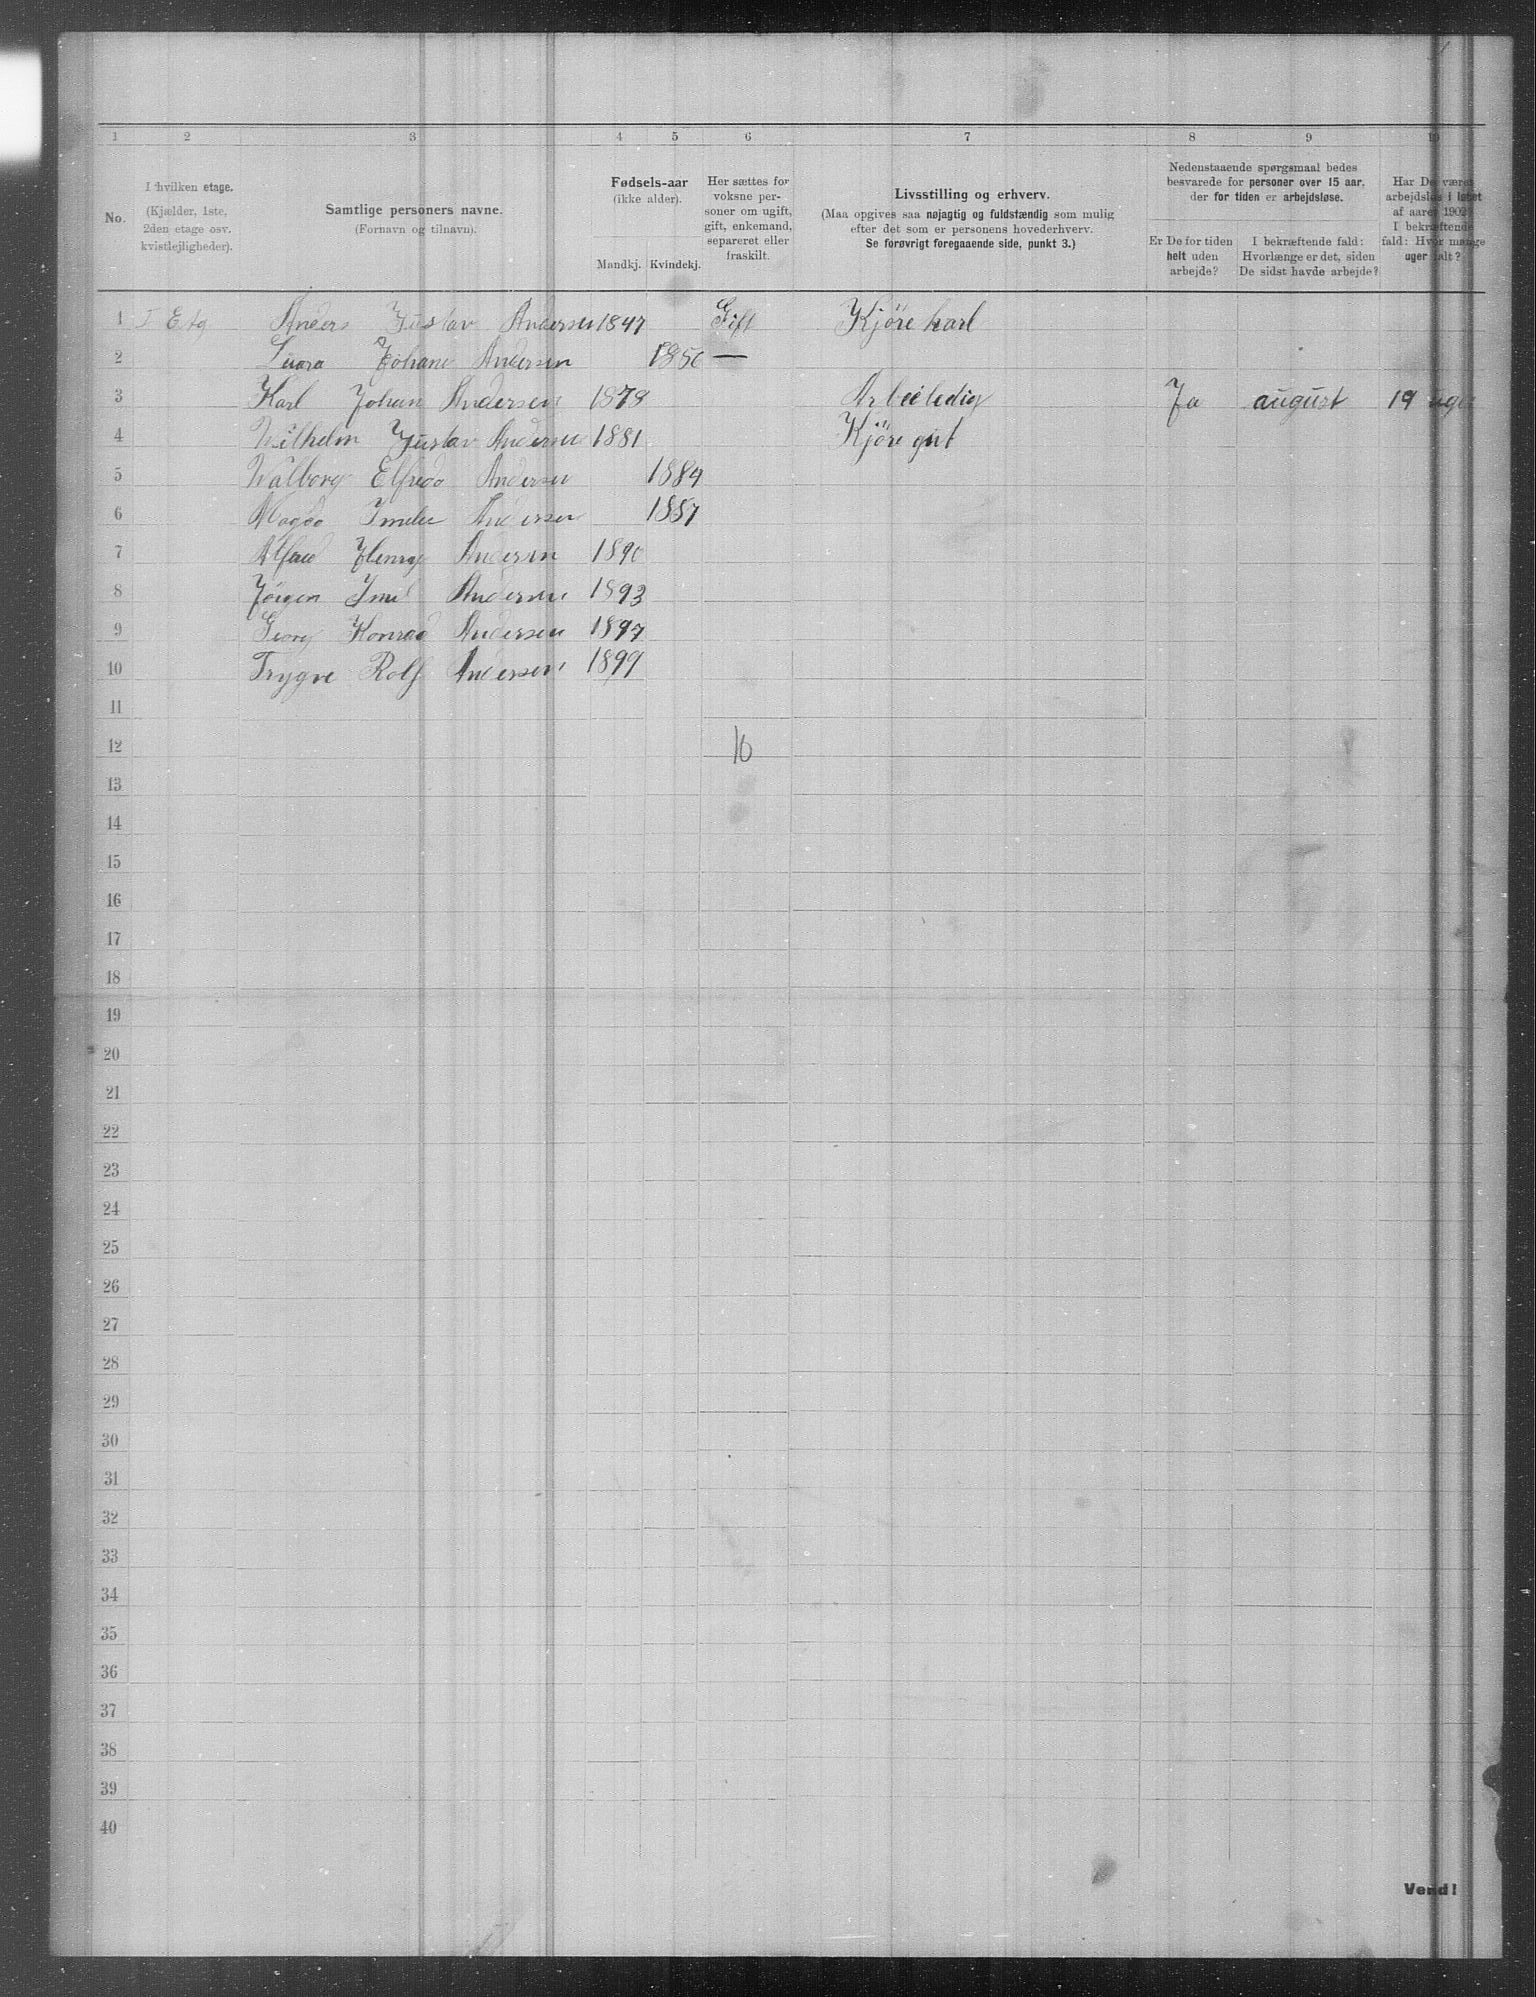 1 2 3 4 5 6 7 8 9 10
No.
I hvilken etage.
(Kjælder, 1ste,
2den etage osv.
kvistlejligheder).
Samtlige personers navne.
(Fornavn og tilnavn).
Fødsels-aar
(ikke alder).
Mandkj. Kvindekj.
Her sættes for
voksne per-
soner om ugift,
gift, enkemand,
separeret eller
fraskilt.
Livsstilling og erhverv.
(Maa opgives saa nøjagtig og fuldstændig som mulig
efter det som er personens hovederhverv.
Se forøvrigt foregaaende side, punkt 3.)
Nedenstaaende spørgsmaal bedes
besvarede for personer over 15 aar,
der for tiden er arbejdsløse.
Er De for tiden
helt uden
arbejde?
I bekræftende fald:
Hvorlænge er det, siden
De sidst havde arbejde?
Har De været
arbejdsløs i løbet
af aaret 1902?
I bekræftende
fald: Hvor mange
uger ialt?
1 I Etg Anders Gustav Andersen 1847 Gift Kjøre karl
2 Johane Andersen 1850 —
3 Karl Johan Andersen 1879 Arbeiledig Ja august 19 uger
4 Wilhelm Gustav Andersen 1881 Kjøre gut
5 Walborg Elfreda Andersen 1884
6 Magda Andersen 1887
7 Alfred Henry Andersen 1890
8 Jørgen Andersen 1893
9 Georg Konrad Andersen 1897
10 Trygve Rolf Andersen 1899
11
12 10
13
14
15
16
17
18
19
20
21
22
23
24
25
26
27
28
29
30
31
32
33
34
35
36
37
38
39
40
Vend!